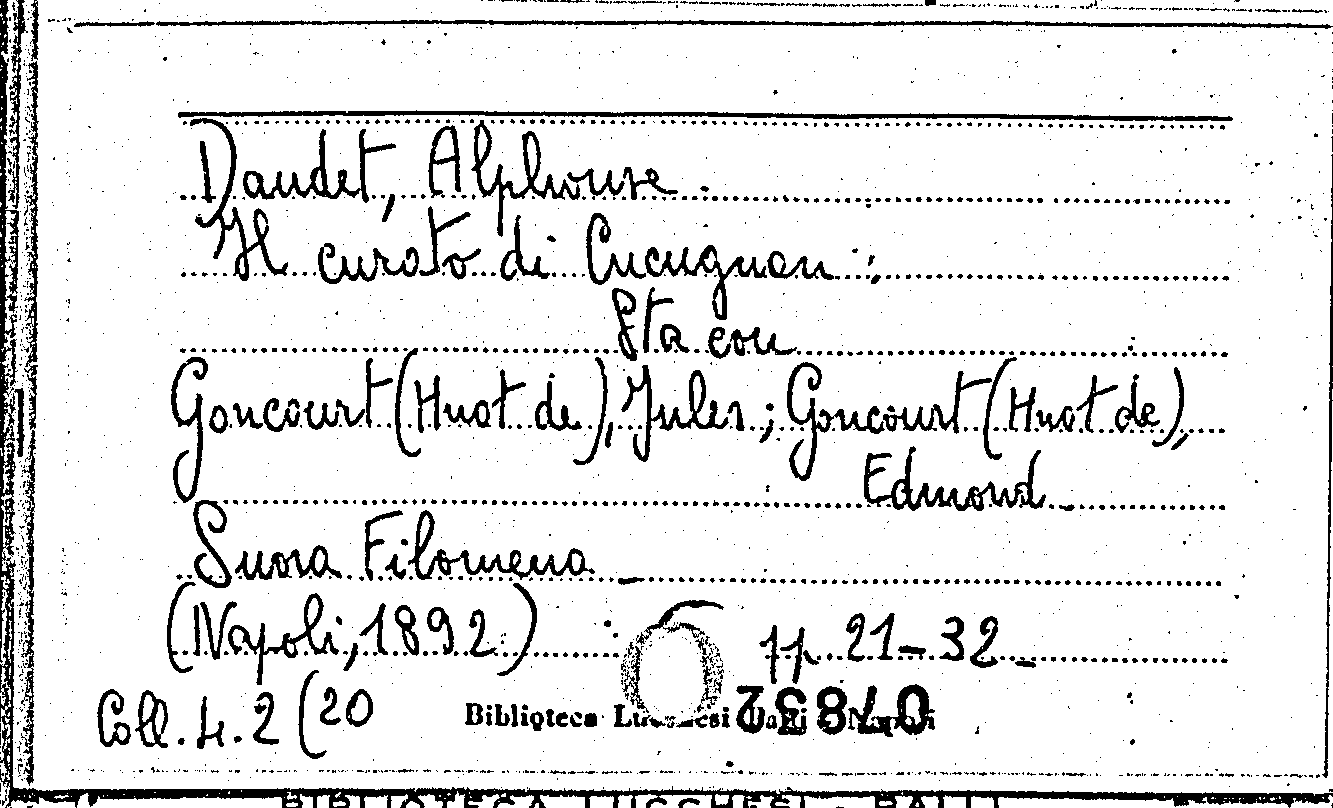 Daudet, Alphonse.
Il curato di Cucugnan :
Sta con
Goncourt (Huot de), Jules; Goncourt (Huot de),
Edmond
Suora Filomena
(Napoli, 1892) pp. 21-32
Coll. 4. 2 (20 Biblioteca Lucchesi Palli Napoli
BIBLIOTECA LUCCHESI - PALLI